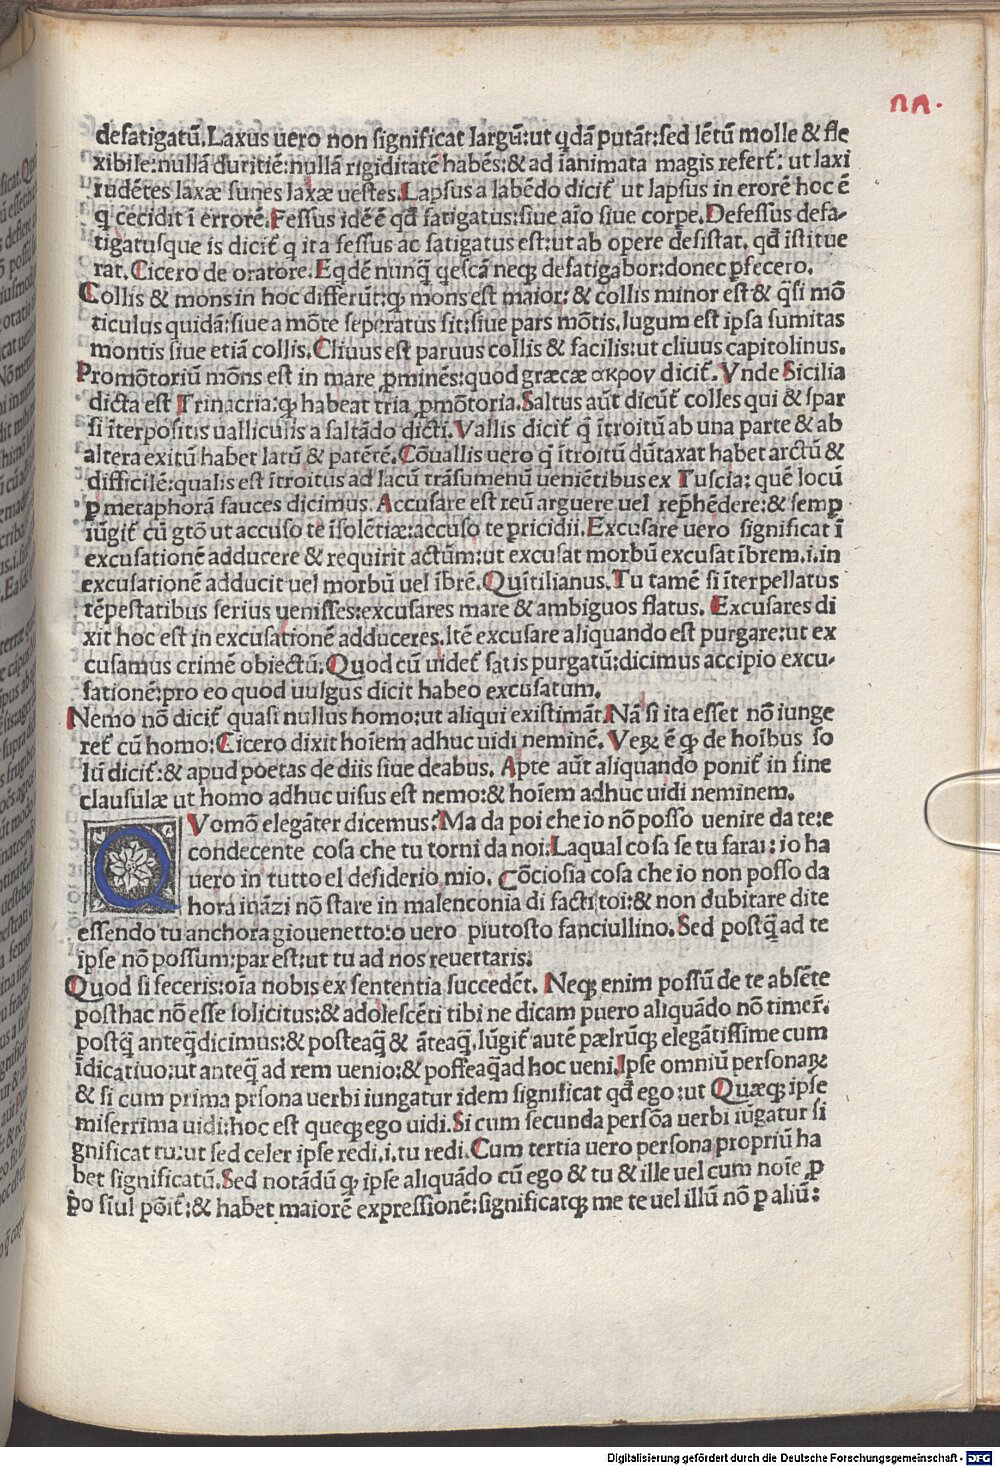 nn.
defatigatū. Laxus uero non significat largū: ut qdā putāt: sed lētū molle & fle
xibile: nullā duritiē: nullā rigiditatē habēs: & ad īanimata magis refert᷑: ut laxi
rudētes laxæ funes laxæ uestes. Lapsus a labēdo dicit᷑ ut lapsus in erorē hoc ē
q̄ cecidit ī errorē. Fessus idē ē qd̄ fatigatus: siue aīo siue corpe. Defessus defa-
tigatusque is dicit᷑ q ita fessus ac fatigatus est: ut ab opere desistat. qd̄ īstitue
rat. Cicero de oratore. Eqdē nunq̄ qescā neqꝫ defatigabor: donec ꝑfecero.
Collis & mons in hoc differūt: qꝫ mons est maior: & collis minor est & q̄si mō
ticulus quidā: siue a mōte seperatus sit: siue pars mōtis. Iugum est ipsa sumitas
montis siue etiā collis. Cliuus est paruus collis & facilis: ut cliuus capitolinus.
Promōtoriū mōns est in mare ꝓminēs: quod græcæ ακρον dicit᷑. Vnde Sicilia
dicta est Trinacria: qꝫ habeat tria ꝓmōtoria. Saltus aūt dicūt᷑ colles qui & spar
si īterpositis ualliculis a saltādo dicti. Vallis dicit᷑ q̄ ītroitū ab una parte & ab
altera exitū habet latū & patētē. Cōuallis uero q̄ ītroitū dūtaxat habet arctū &
difficilē: qualis est ītroitus ad lacū trāsumenū ueniētibus ex Tuscia: quē locū
ꝑ metaphorā fauces dicimus. Accusare est reū arguere uel rep̄hēdere: & semꝑ
iūgit᷑ cū gtō ut accuso te īsolētiæ: accuso te ꝑricidii. Excusare uero significat ī
excusationē adducere & requirit actūm: ut excusat morbū excusat ībrem .i. in
excusationē adducit uel morbū uel ībrē. Quītilianus. Tu tamē si īterpellatus
tēpestatibus serius uenisses: excusares mare & ambiguos flatus. Excusares di
xit hoc est in excusationē adduceres. Itē excusare aliquando est purgare: ut ex
cusamus crimē obiectū. Quod cū uidet᷑ satis purgatū: dicimus accipio excu-
sationē: pro eo quod uulgus dicit habeo excusatum.
Nemo nō dicit᷑ quasi nullus homo: ut aliqui existimāt. Nā si ita esset nō iunge
ret᷑ cū homo: Cicero dixit hoīem adhuc uidi neminē. Veꝝ ē qꝫ de hoībus so
lū dicit᷑: & apud poetas de diis siue deabus. Apte aūt aliquando ponit᷑ in fine
clausulæ ut homo adhuc uisus est nemo: & hoīem adhuc uidi neminem.
QVomō elegāter dicemus: Ma da poi che io nō posso uenire da te: e
condecente cosa che tu torni da noi. Laqual cosa se tu farai: io ha
uero in tutto el desiderio mio. Cōciosia cosa che io non posso da
hora ināzi nō stare in malenconia di facti toi: & non dubitare dite
essendo tu anchora giouenetto: o uero piutosto fanciullino. Sed postq̄ ad te
ipse nō possum: par est: ut tu ad nos reuertaris:
Quod si feceris: oīa nobis ex sententia succedēt. Neqꝫ enim possū de te absēte
posthac nō esse solicitus: & adolescēti tibi ne dicam puero aliquādo nō timer᷑.
postq̄ anteq̄ dicimus: & posteaq̄ & āteaq̄. Iūgit᷑ autē pælrūqꝫ elegātissime cum
īdicatiuo: ut anteq̄ ad rem uenio: & posteaq̄ ad hoc ueni. Ipse omniū personaꝝ
& si cum prima ꝑsona uerbi iungatur idem significat qd̄ ego: ut Quæqꝫ ipse
miserrima uidi: hoc est queqꝫ ego uidi. Si cum secunda persōa uerbi iūgatur si
gnificat tu: ut sed celer ipse redi .i. tu redi. Cum tertia uero persona propriū ha
bet significatū. Sed notādū qꝫ ipse aliquādo cū ego & tu & ille uel cum noīe ꝓ
p̄o siul pōit᷑: & habet maiorē expressionē: significatqꝫ me te uel illū nō ꝑ aliū:
Digitalisierung gefördert durch die Deutsche Forschungsgemeinschaft - DFG